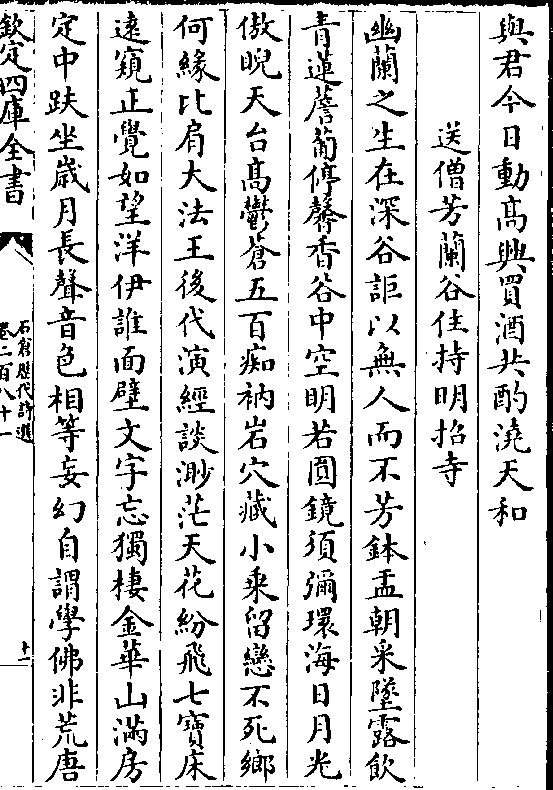 與君今日動髙興買酒共酌澆天和
送僧芳蘭谷住持明招寺
幽蘭之生在深谷詎以無人而不芳鉢盂朝采墜露飲
青蓮薝蔔停馨香谷中空明若圓鏡須彌環海日月光
傲睨天台髙鬱蒼五百痴衲岩穴藏小乗留戀不死鄉
何緣比肩大法王後代演經談渺茫天花紛飛七寶床
逺窺正覺如望洋伊誰面壁文字忘獨棲金華山滿房
定中趺坐歳月長聲音色相等妄幻自謂學佛非荒唐
欽定四庫全書
石倉歴代詩選
卷二百八十一
十一